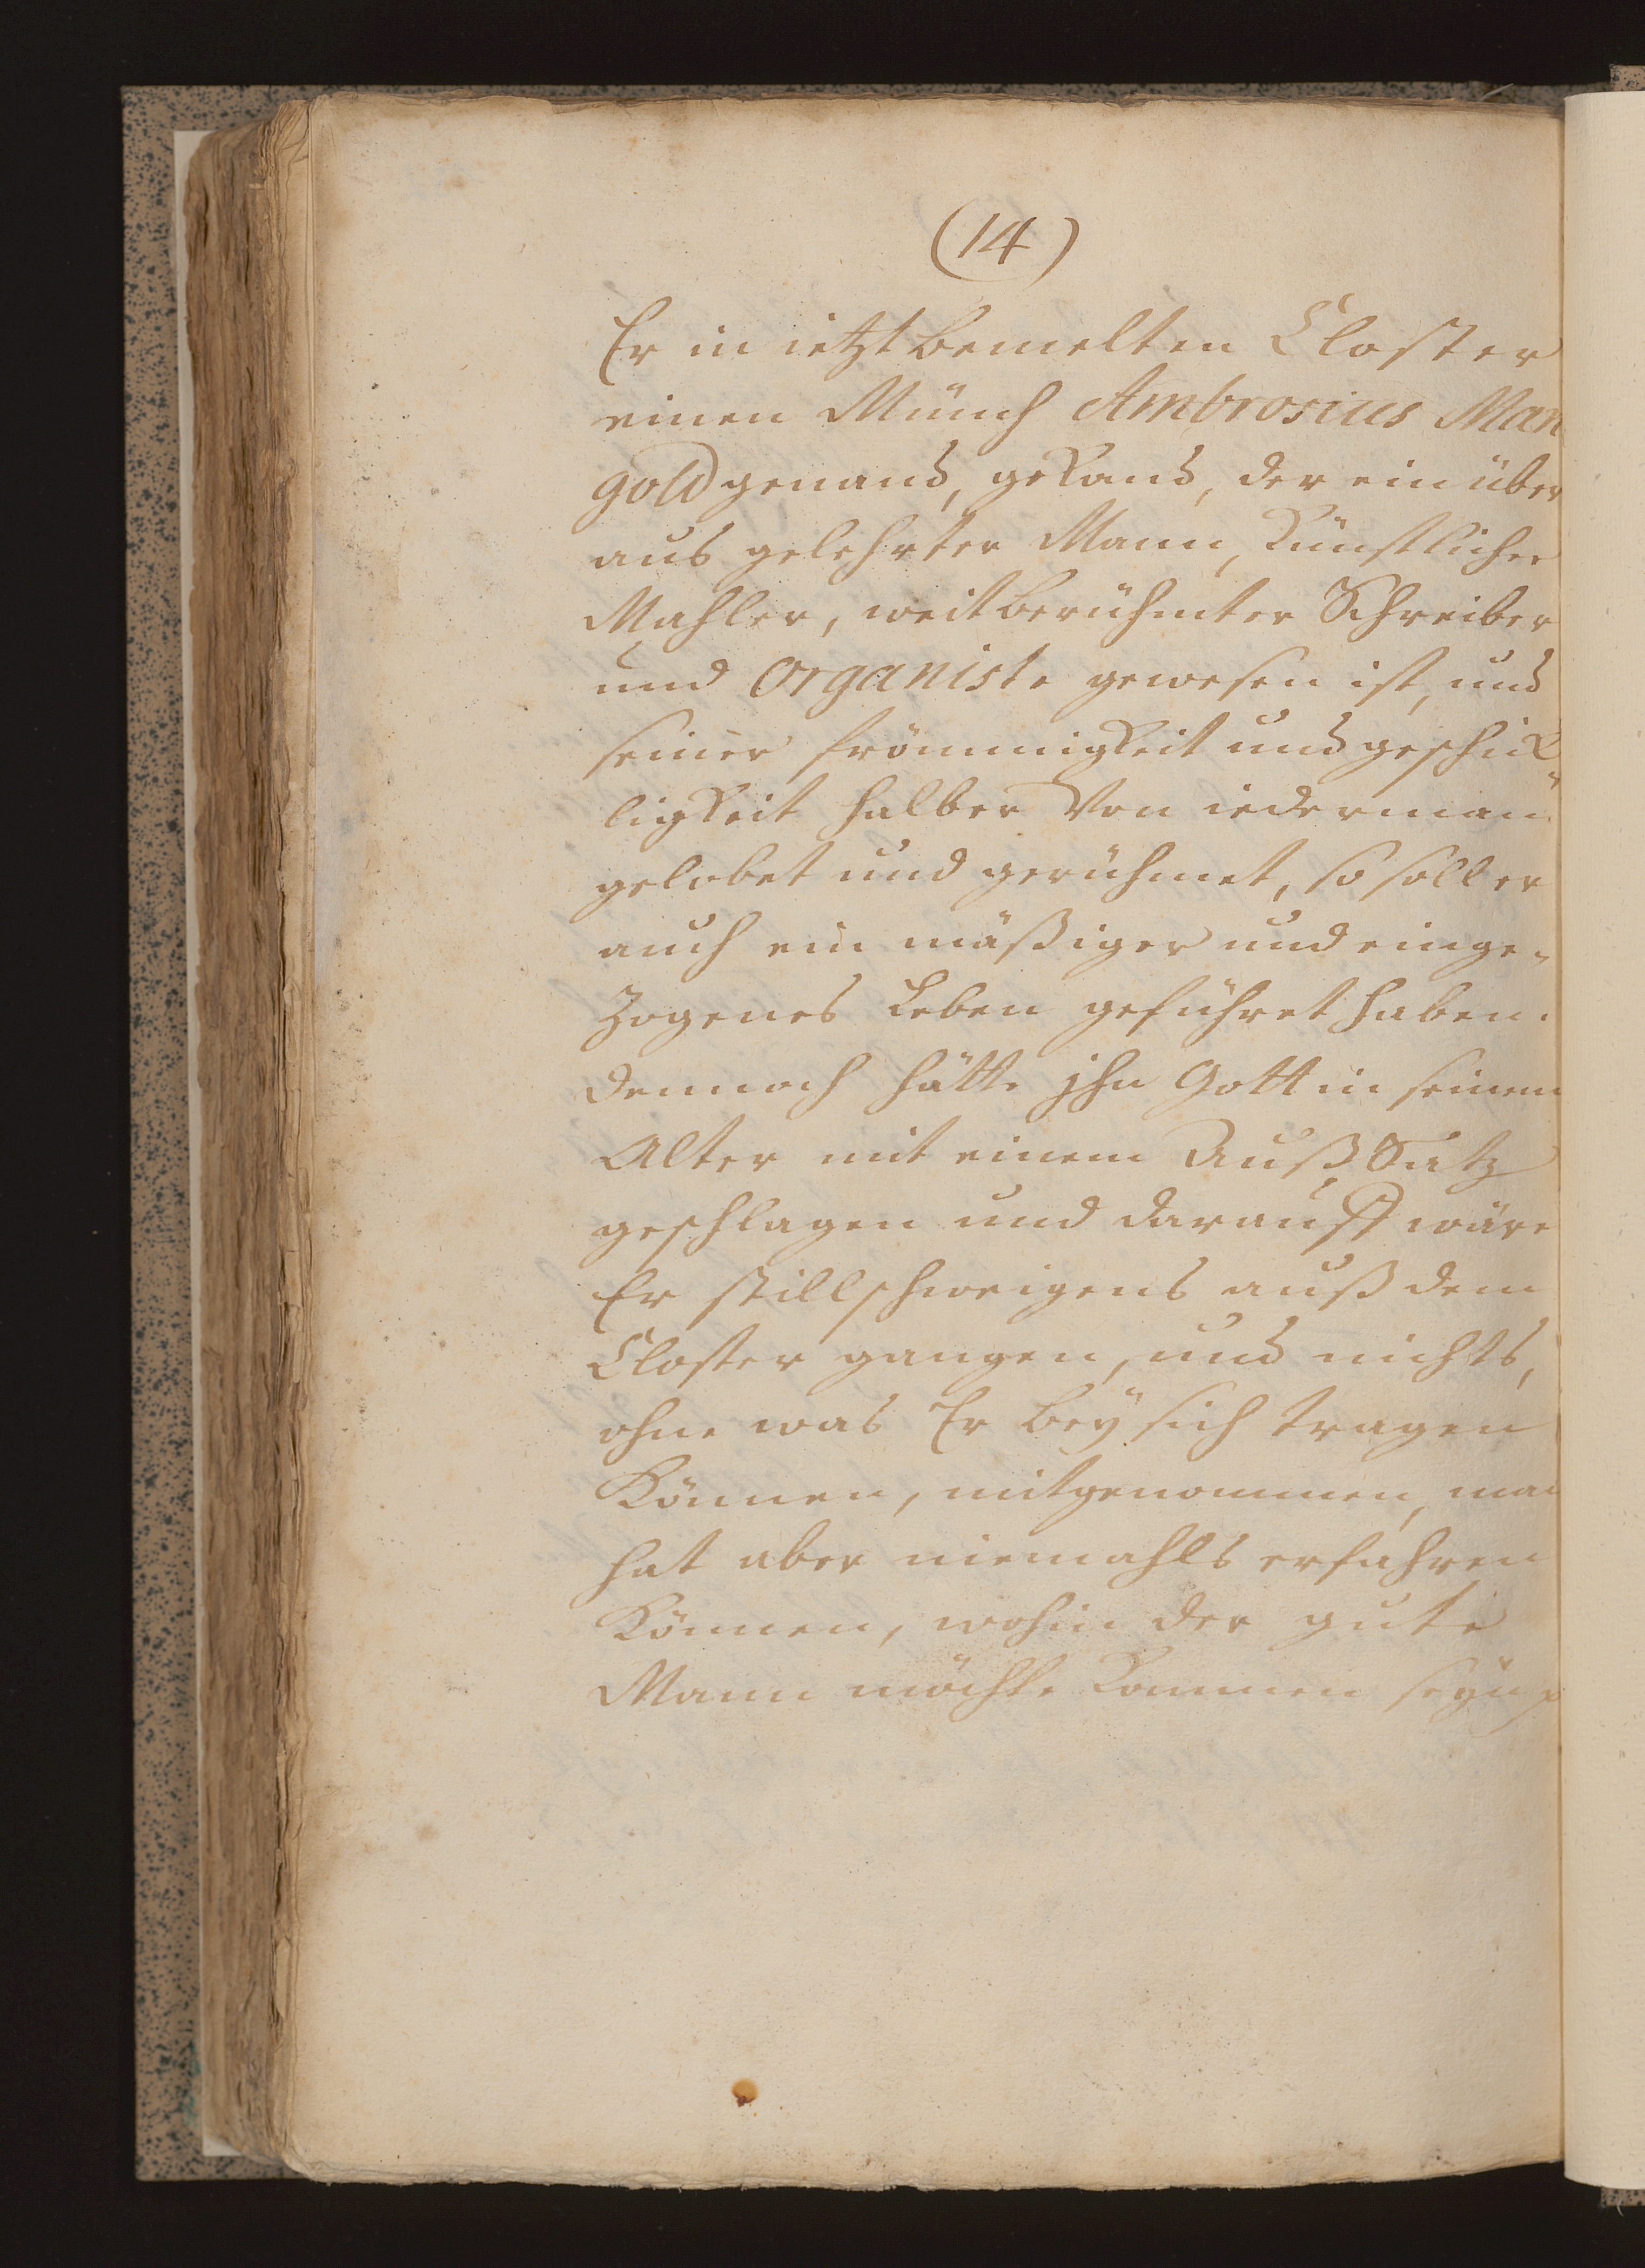 (14)
Er in ietzt bemelten Closter
einen Münch Ambrosius Man
gold genand, gekand, der ein über
aus gelehrter Mann, künstlicher
Mahler, weitberühmter Schreiber
und Organiste gewesen ist, und
seiner frömmigkeit und geschick
ligkeit halber von iederman
gelobet und gerühmet, so soll er
auch ein mäßiger und einge-
zogenes Leben geführet haben.
dennoch hätte jhn Gott in seinem
Alter mit einem Auß Satz
geschlagen und darauf wäre
Er stillschweigens auß dem
Closter gangen, und nichts,
ohne was Er beÿ sich tragen
können, mitgenommen, man
hat aber niemahls erfahren
können, wohin der gute
Mann möchte kommen seyn